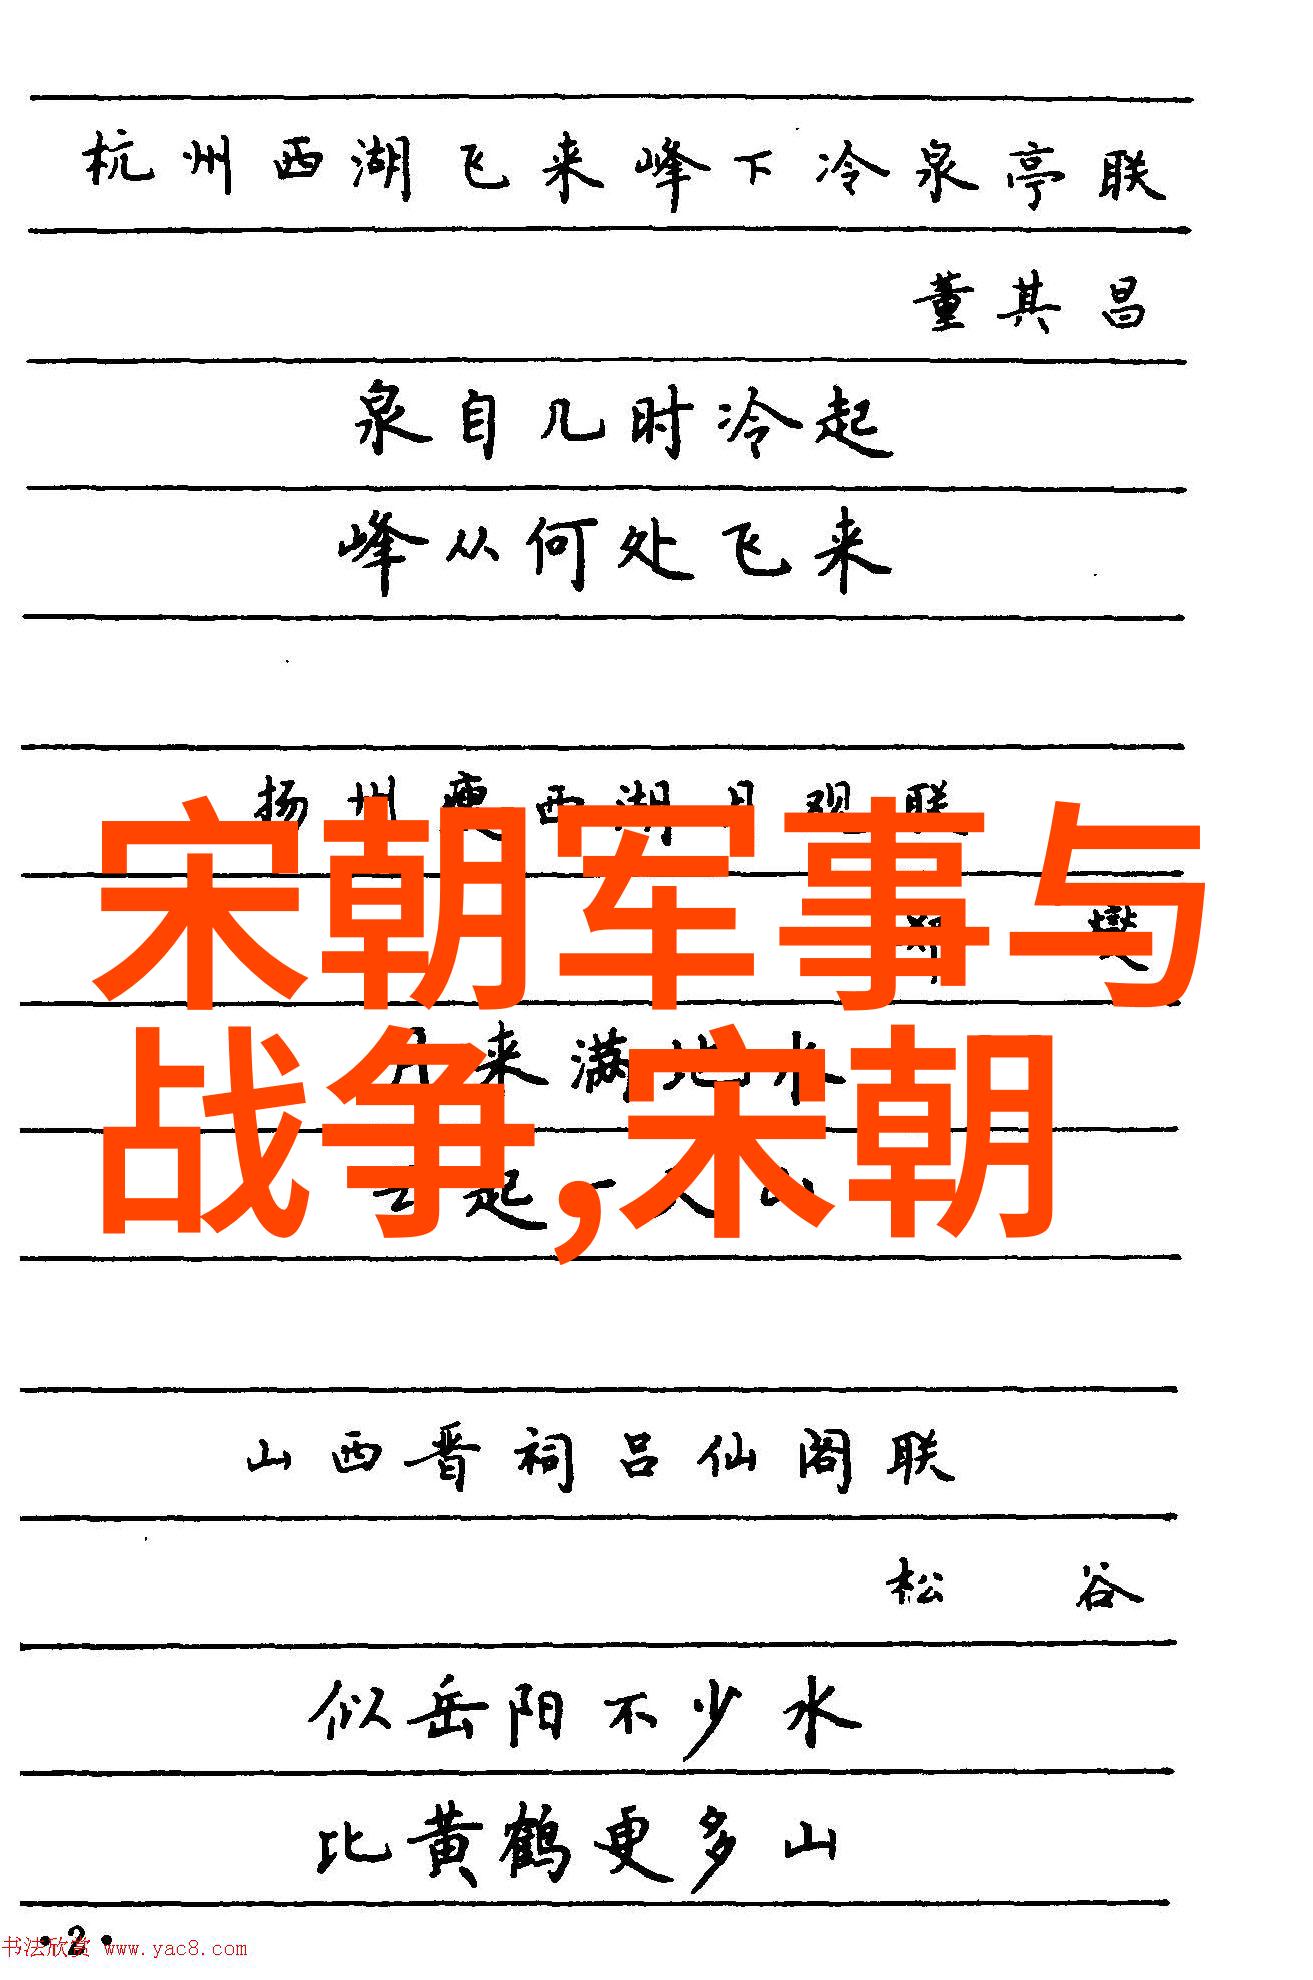 杭州西湖飞来峰下冷泉亭联
董其昌
泉自几时冷起
峰从何处飞来
扬州瘦西湖月观联
宋朝军事与
燮
月来满地水
战争,宋朝
云起一天山
山西晋祠吕仙阁联
松谷
似岳阳不少水
比黄鹤更多山
·2·
书法欣赏 www.yac8.com